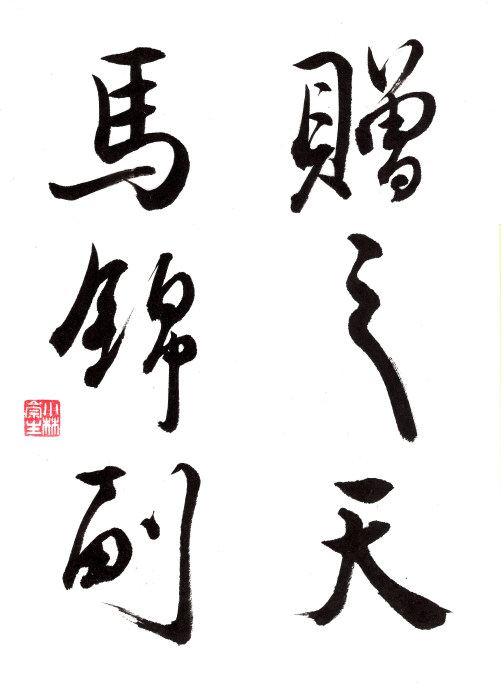 贈之天
馬錦副
小林